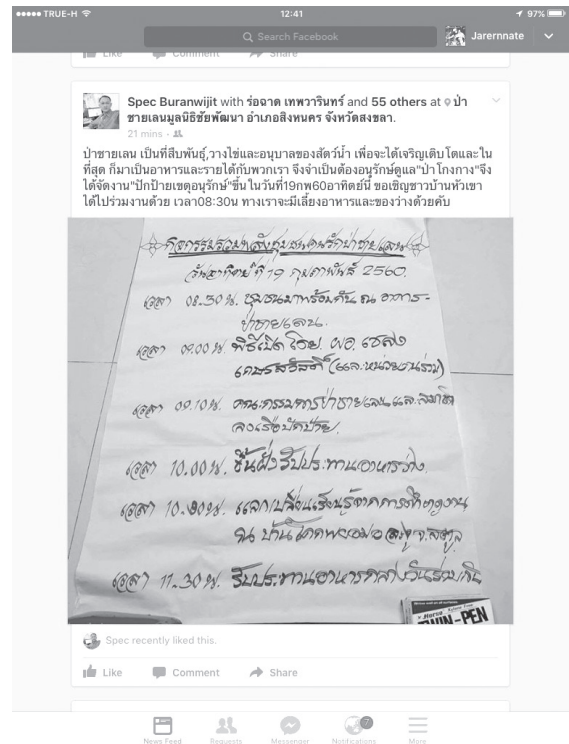 TRUE-H
12:41
97%
Search Facebook
Jarernnate
Like Comment Share
Spec Buranwijit with ร่อฉาด เทพวารินทร์ and 55 others at ป่า
ชายเลนมูลนิธิชัยพัฒนา อำเภอสิงหนคร จังหวัดสงขลา.
21 mins
ป่าชายเลน เป็นที่สืบพันธุ์,วางไข่และอนุบาลของสัตว์น้ำ เพื่อจะได้เจริญเติบโตและใน
ที่สุด ก็มาเป็นอาหารและรายได้กับพวกเรา จึงจำเป็นต้องอนุรักษ์ดูแล"ป่าโกงกาง"จึง
ได้จัดงาน"ปักป้ายเขตอนุรักษ์"ขึ้นในวันที่19กพ60อาทิตย์นี้ ขอเชิญชาวบ้านหัวเขา
ได้ไปร่วมงานด้วย เวลา08:30น ทางเราจะมีเลี้ยงอาหารและของว่างด้วยคับ
กิจกรรมรวมพลังชุมชนคนรักป่าชายเลน
วันอาทิตย์ ที่ 19 กุมภาพันธ์ 2560.
เวลา 08.30 น. ชุมชนมาพร้อมกัน ณ อาคาร-
ป่าชายเลน.
เวลา 09.00 น. พิธีเปิด โดย. ผอ.
(และหน่วยงานร่วม)
เวลา 09.10 น. คณะกรรมการป่าชายเลนและสมาชิก
ลงเรือปักป้าย.
เวลา 10.00 น. ขึ้นฝั่งรับประทานอาหารว่าง.
เวลา 10.30 น. แลกเปลี่ยนเรียนรู้จากการศึกษาดูงาน
ณ บ้าน จ.สตูล
เวลา 11.30 น. รับประทานอาหารกลางวันร่วมกัน
Horse
TWIN-PEN
Spec recently liked this.
Like Comment Share
7
News Feed Requests Messenger Notifications More